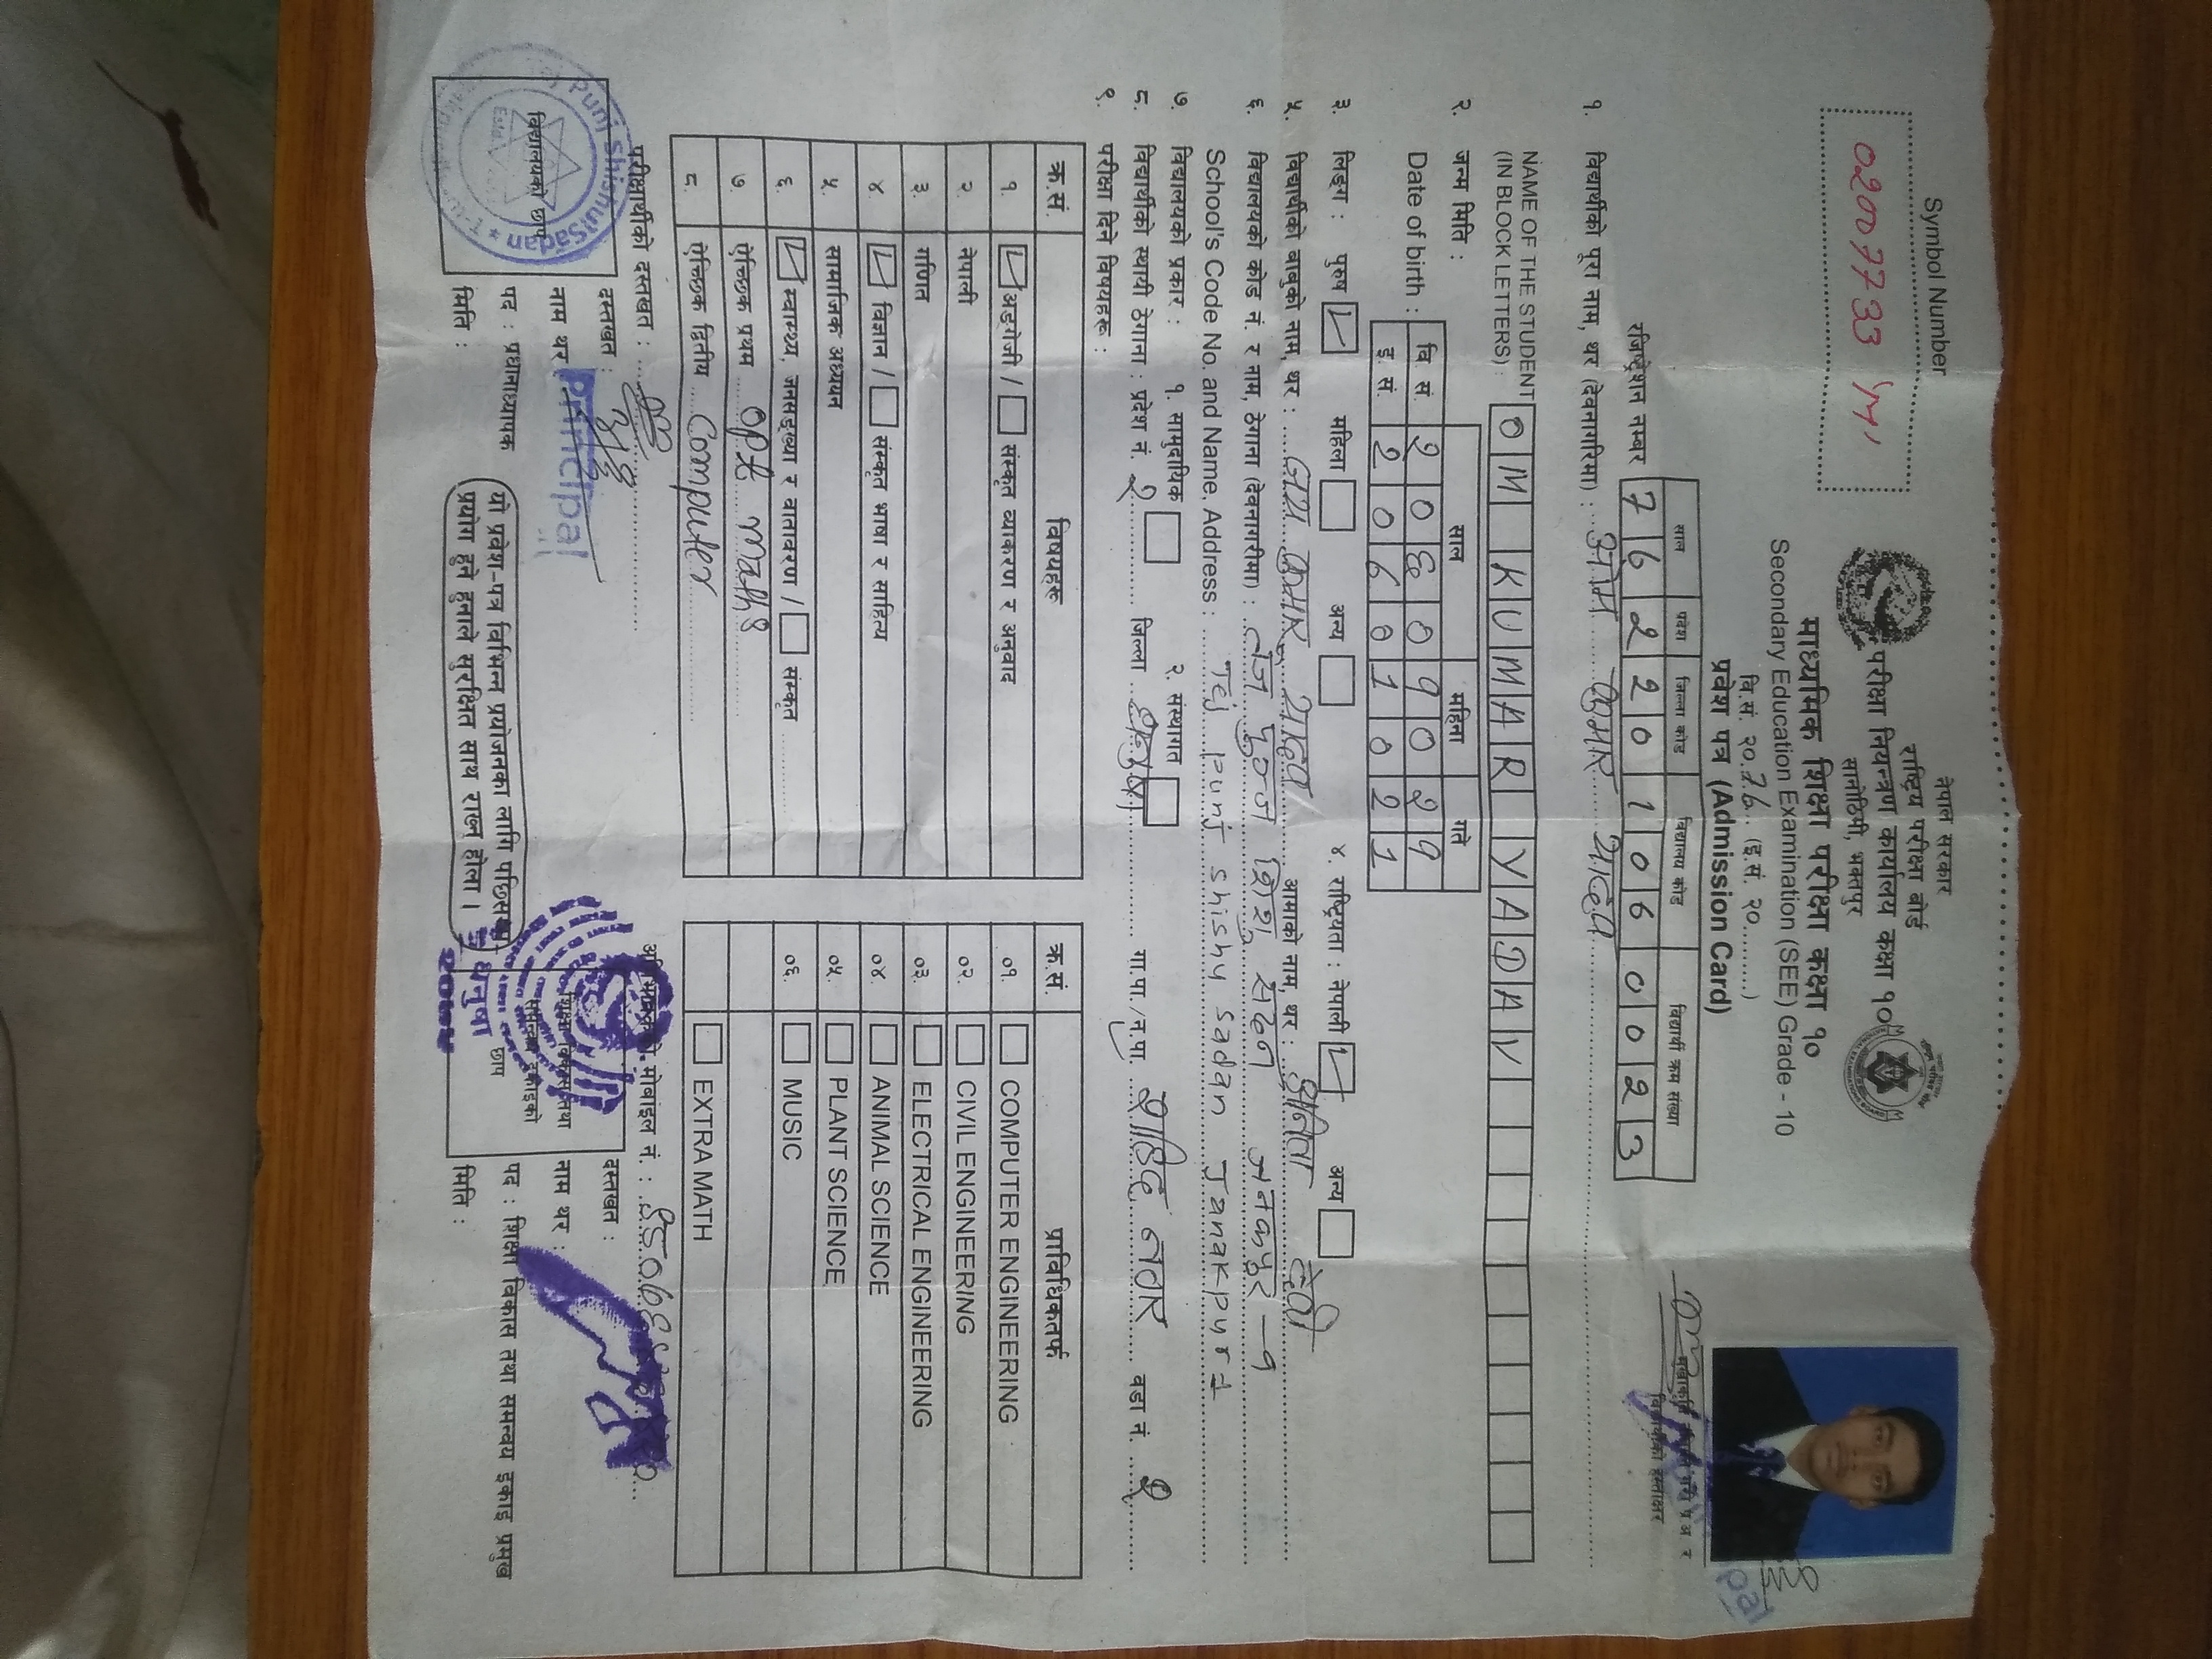 Symbol Number
02007733 'M'
नेपाल सरकार
राष्ट्रिय परीक्षा बोर्ड
परीक्षा नियन्त्रण कार्यालय कक्षा १०
सानोठिमी, भक्तपुर
माध्यमिक शिक्षा परीक्षा कक्षा १०
Secondary Education Examination (SEE) Grade - 10
वि.सं. २०.76... (इ.सं. २०.........)
प्रवेश पत्र (Admission Card)
विद्यार्थीको हस्ताक्षर
साल प्रदेश जिल्ला कोड विद्यालय कोड विद्यार्थी क्रम संख्या
रजिष्ट्रेशन नम्बर 7 6 2 2 0 1 0 6 0 0 2 3
१. विद्यार्थीको पूरा नाम, थर (देवनागरिमा) : ओम कुमार यादव
NAME OF THE STUDENT
(IN BLOCK LETTERS) : OM KUMAR YADAV
२. जन्म मिति : साल महिना गते
Date of birth : वि. सं. २ ० ६ ० १ ० २ १
इ. सं. 2 0 6 0 1 0 2 1
३. लिङ्ग : पुरुष महिला अन्य ४. राष्ट्रियता : नेपाली अन्य
५. विद्यार्थीको बाबुको नाम, थर : जय कुमार यादव आमाको नाम, थर : अनिता देवी
६. विद्यालयको कोड नं. र नाम, ठेगाना (देवनागरीमा) : तेज पुन्ज शिशु सदन जनकपुर -१
School's Code No. and Name, Address : Tej punj shishu sadan Janakpur 1
७. विद्यालयको प्रकार : १. सामुदायिक २. संस्थागत
८. विद्यार्थीको स्थायी ठेगाना : प्रदेश नं. २ जिल्ला धनुषा गा.पा./न.पा. शहिद नगर वडा नं. २
९. परीक्षा दिने विषयहरू :
क्र.सं. विषयहरू
१. अङ्गेजी / संस्कृत व्याकरण र अनुवाद
२. नेपाली
३. गणित
४. विज्ञान / संस्कृत भाषा र साहित्य
५. सामाजिक अध्ययन
६. स्वास्थ्य, जनसङ्ख्या र वातावरण / संस्कृत
७. ऐच्छिक प्रथम opt maths
८. ऐच्छिक द्वितीय computer
क्र.सं. प्राविधिकतर्फ
०१. COMPUTER ENGINEERING
०२. CIVIL ENGINEERING
०३. ELECTRICAL ENGINEERING
०४. ANIMAL SCIENCE
०५. PLANT SCIENCE
०६. MUSIC
EXTRA MATH
परीक्षार्थीको दस्तखत :
दस्तखत :
नाम थर Principal
पद : प्रधानाध्यापक
मिति :
Punj Shishu Sadan
विद्यालयको छाप
यो प्रवेश-पत्र विभिन्न प्रयोजनका लागि पछिसम्म
प्रयोग हुने हुनाले सुरक्षित साथ राख्नु होला ।
अभिभावकको मोबाइल नं. :
शिक्षा विकास तथा
समन्वय इकाइको
छाप
धनुषा
२०७५
दस्तखत :
नाम थर :
पद : शिक्षा विकास तथा समन्वय इकाइ प्रमुख
मिति :